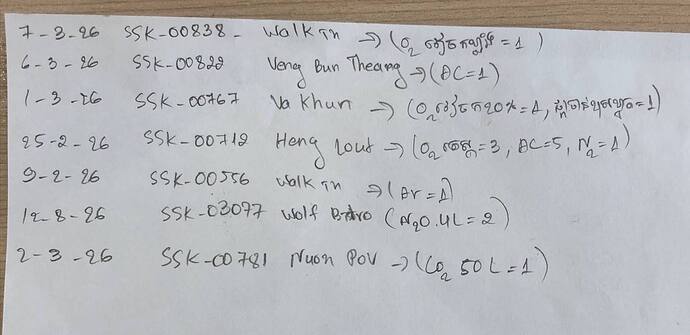 7-3-26 SSK-00838- Walk in → (O₂ = 1)
6-3-26 SSK-00822 Veng Bun Theang → (AC=1)
1-3-26 SSK-00767 Va Khun → (O₂ = 1, = 1)
25-2-26 SSK-00712 Heng Lout → (O₂ = 3, AC=5, N₂=1)
9-2-26 SSK-00556 Walk in → (Ar=1)
12-8-26 SSK-03097 Wolf (N₂O.4L=2)
2-3-26 SSK-00781 Nuon Pov → (CO₂ 50L=1)